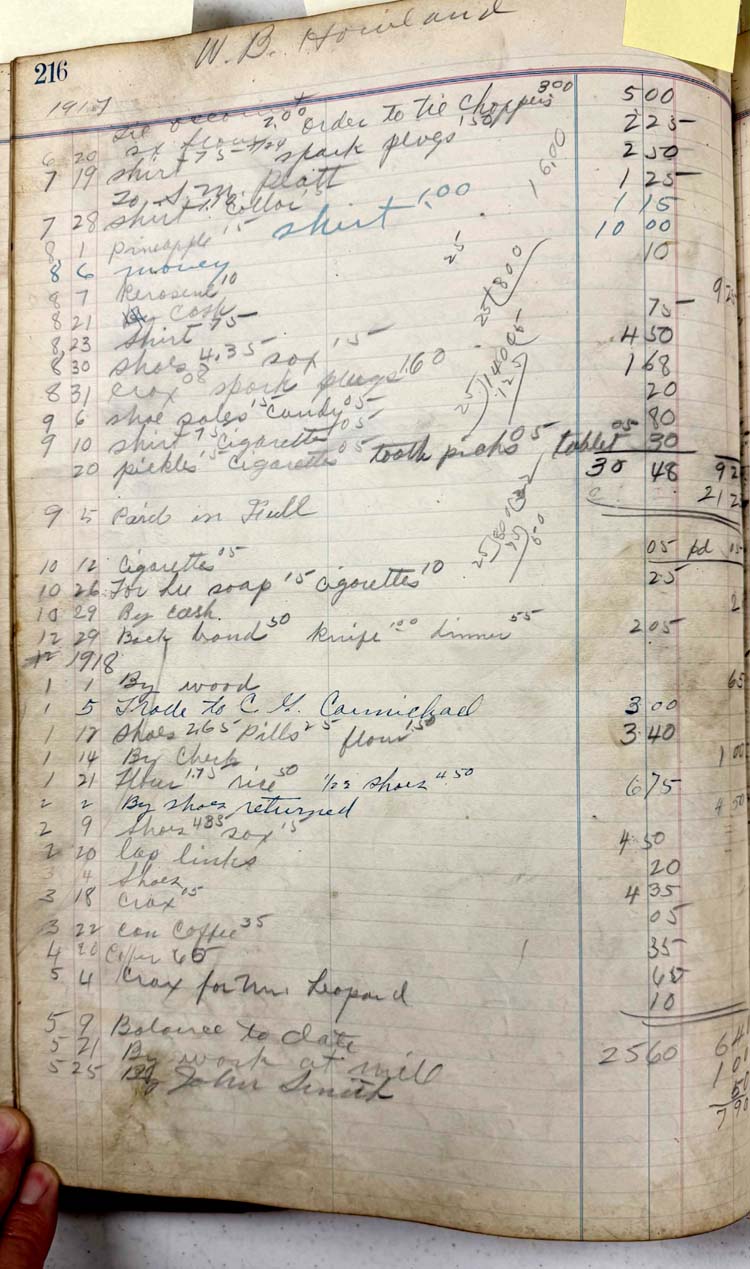 216
W. B. Howland
1917
Tie account
6 20 sx flour 2.00 order to tie choppers 3 00 5 00
7 19 shirt 75 spark plugs 1 50 2 25
To S. M. Platt 2 50
7 28 shirt collar 15 1 25
8 1 Pineapple 15 shirt 1.00 1 15
8 6 money 10 00
8 7 Kerosene 10 10
8 21 By cash 9 25
8 23 Shirt 75 75
8 30 Shoes 4.35 sox 15 4 50
8 31 Crax 08 spark plugs 1 60 1 68
9 6 shoe soles 15 Candy 05 20
9 10 shirt 75 Cigarettes 05 80
20 pickles 15 Cigarettes 05 tooth picks 05 tablet 05 30
30 48 9 25
9 5 Paid in Full 21 23
10 12 Cigarettes 05 05 pd
10 26 For Lie soap 15 Cigarettes 10 25
10 29 By cash
12 29 Back band 50 knife 1 00 dinner 55 2 05
1918
1 1 By wood 65
1 5 Trade to C. G. Carmichael 3 00
1 12 Shoes 265 Pills 25 flour 50 3 40
1 14 By Check 1 00
1 21 Flour 1.75 rice 50 1/22 shoes 4 50 6 75
2 2 By shoes returned 4 50
2 9 Shoes 435 sox 15 4 50
2 20 Lap links 20
3 4 Shoes 4 35
3 18 Crax 05 05
3 22 Can Coffee 35 35
4 20 Coffee 65 65
5 4 Crax for Mr. Leopard 10
5 9 Balance to date 25 60
5 21 By work at mill
5 25 By John Smith
7 90
16.00